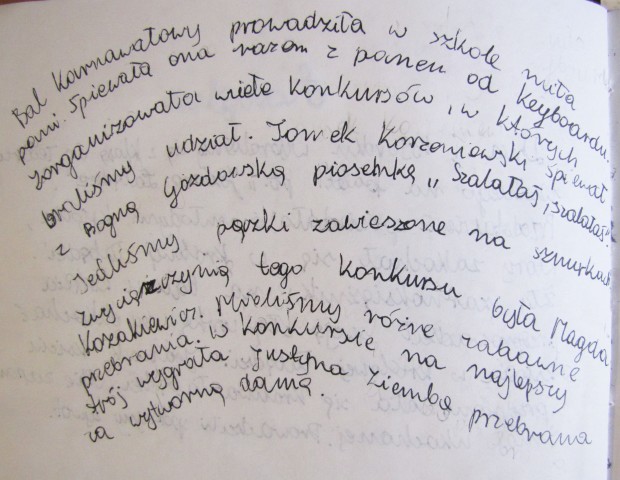 Bal Karnawałowy prowadziła w szkole miła
pani. Śpiewała ona razem z panem od Keyboardu.
Zorganizowała wiele konkursów, w których
braliśmy udział. Tomek Korzeniowski śpiewał
z Bogną Gozdowską piosenkę „Szalałaś, szalałaś"
Jedliśmy pączki zawieszone na sznurkach
zwyciężczynią tego konkursu była Magda
Kozakiewicz. Mieliśmy różne zabawne
przebrania. w konkursie na najlepszy
strój wygrała Justyna Ziemba przebrana
za wytworną damą.